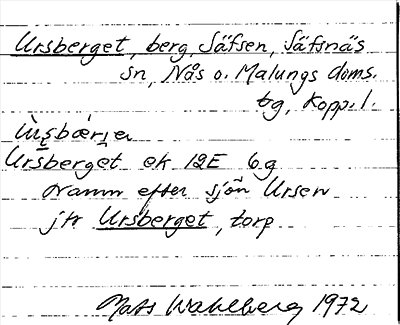 Ursberget, berg, Säfsen, Säfsnäs
sn, Nås o. Malungs doms.
bg, Kopp. l.
Ursberget ek 12E 6g
Namn efter sjön Ursen
jfr Ursberget, torp
Mats Wahlberg 1972